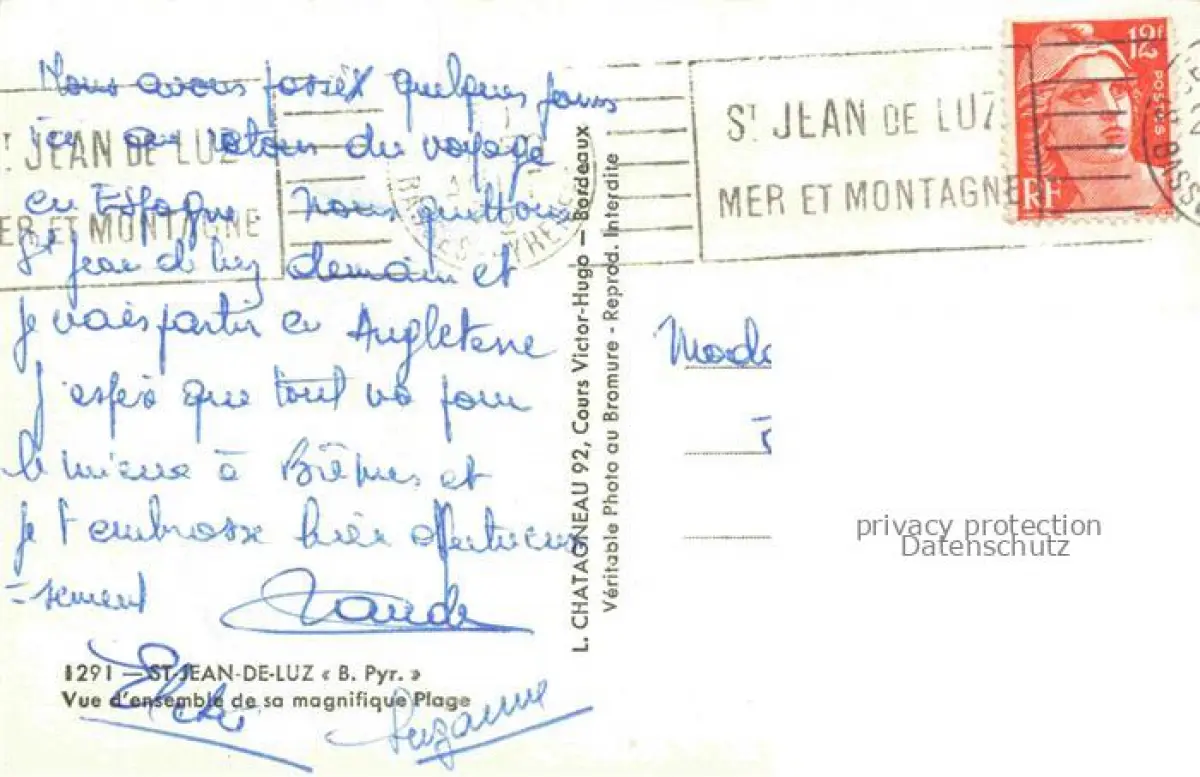 Nous avons passé quelques jours
ici au retour du voyage
en Espagne. Nous quittons
St Jean de Luz demain et
je vais partir en Angleterre
J'espère que tout va pour
le mieux à et
je t'embrasse bien affectueu
-sement Claude
Suzanne
1291 — ST-JEAN-DE-LUZ « B. Pyr. »
Vue d'ensemble de sa magnifique Plage
L. CHATAGNEAU 92, Cours Victor-Hugo — Bordeaux
Véritable Photo au Bromure - Reprod. Interdite
ST JEAN DE LUZ
MER ET MONTAGNE
ST JEAN DE LUZ
MER ET MONTAGNE
12F
POSTES
RF
privacy protection
Datenschutz